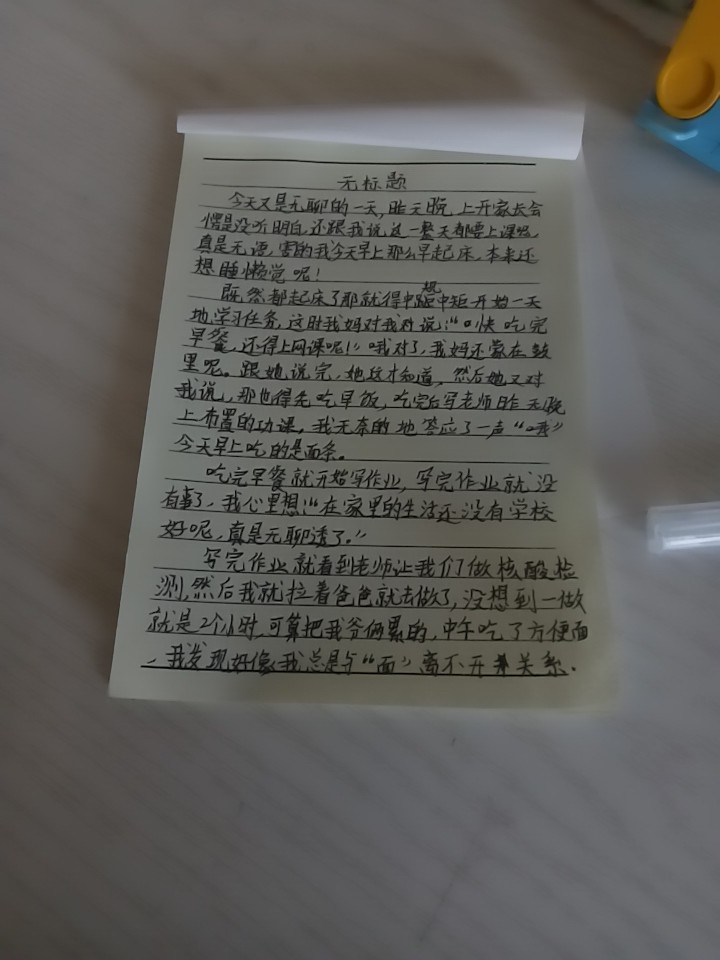 无标题
今天又是无聊的一天,昨天晚上开家长会
愣是没听明白,还跟我说这一整天都要上课呢
真是无语,害的我今天早上那么早起床,本来还
想睡懒觉呢!
既然都起床了那就得中规中矩开始一天
地学习任务,这时我妈对我说:“快吃完
早餐,还得上网课呢!”哦对了,我妈还蒙在鼓
里呢。跟她说完,她这才知道,然后她又对
我说,那也得先吃早饭,吃完后写老师昨天晚
上布置的功课。我无奈的地答应了一声“哦”
今天早上吃的是面条。
吃完早餐就开始写作业,写完作业就没
有事了,我心里想:“在家里的生活还没有学校
好呢,真是无聊透了。”
写完作业就看到老师让我们做核酸检
测,然后我就拉着爸爸就去做了,没想到一做
就是2个小时,可算把我爷俩累的,中午吃了方便面
,我发现好像我总是与“面”离不开关系.